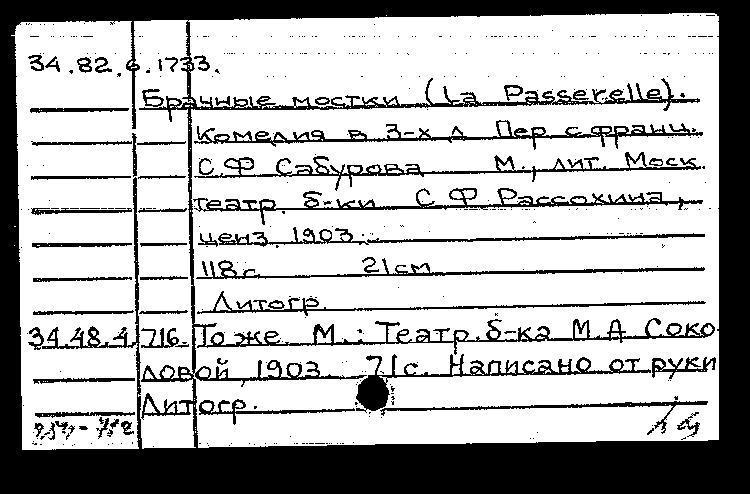 34.82.6.1733.
Брачные мостки (La Passerelle).
Комедия в 3-х д Пер с франц.
С.Ф Сабурова М., лит. Моск
театр. б-ки С Ф Рассохина,
ценз. 1903.
118с 21см
Литогр.
34.48.4.716. То же М.: Театр. б-ка М.А Соко
ловой, 1903. 71с. Написано от руки
Литогр.